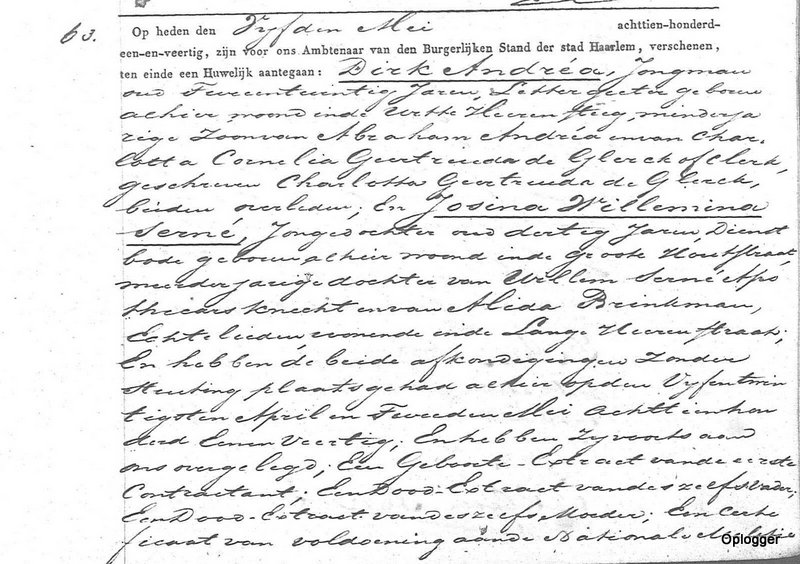 63. Op heden den Vyfden Mei achttien-honderd-
een-en-veertig, zijn voor ons Ambtenaar van den Burgerlijken Stand der stad Haarlem, verschenen,
ten einde een Huwelijk aantegaan: Dirk Andréa, Jongman
oud Tweeentwintig Jaren, Lettergieter geboren
alhier woond inde Witte Heeren steeg, minderja
rige Zoon van Abraham Andréa en van Char,
lotta Cornelia Geertruida de Glerck of Clerk,
geschreven Charlotta Geertruida de Glerck,
beiden overleden; En Josina Willemina
Serné, Jongedochter oud dertig Jaren, Dienst
bode geboren alhier woond inde Groote Houtstraat,
meerderjarige dochter van Willem Serné Apo
thecarsknecht en van Alida Brinkman,
Echtelieden wonende inde Lange Heerenstraat;
En hebben de beide afkondigingen zonder
stuiting plaats gehad alhier op den Vyfentwin
tigsten April en Tweeden Mei achttienhon
derd Eenen Veertig; En hebben Zy voorts aan
ons overgelegd; Een Geboorte-Extract van de eerste
Contractant; Een Dood-Extract van deszelfs Vader;
Een Dood-Extract van deszelfs Moeder; Een certi
ficaat van voldoening aan de Nationale Militie
Oplogger